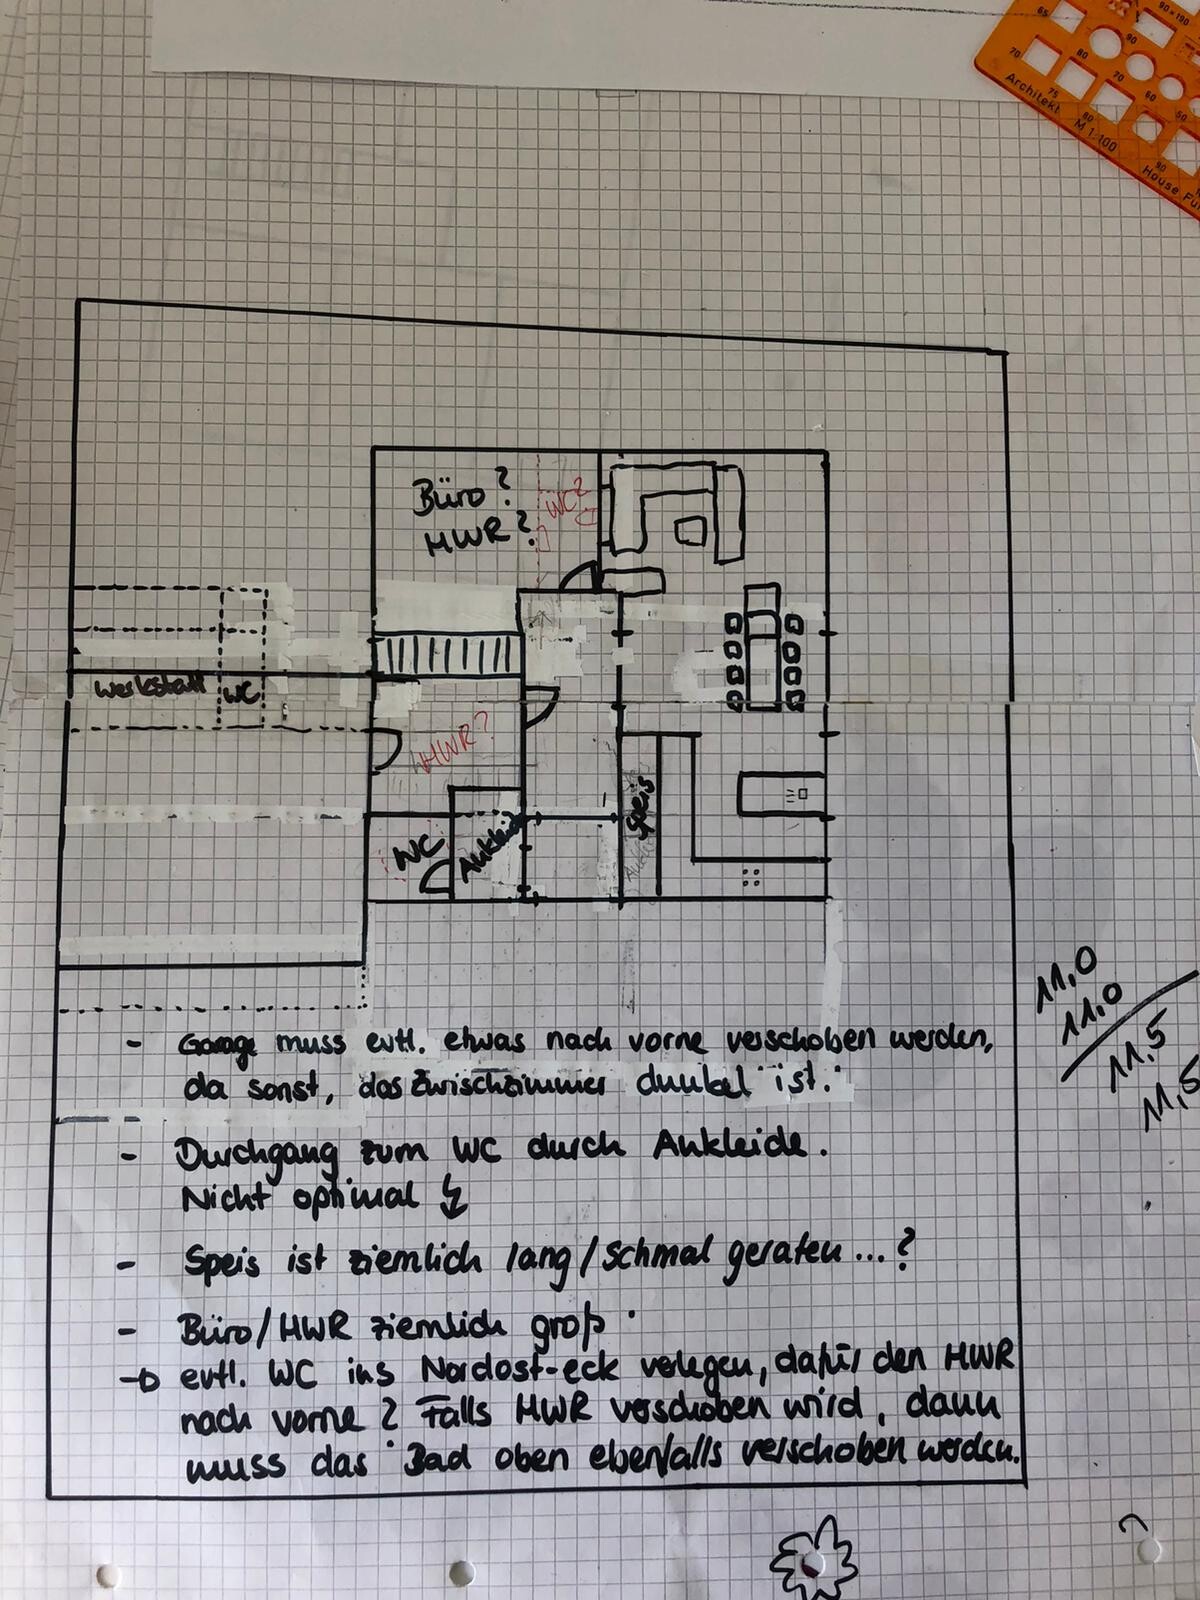 65
90×190
70
80
90
75
70
60
80
50
90
Architekt M 1:100
House Fu
Büro?
WC?
HWR?
Werkstatt
WC
HWR?
Speis
WC
Ankleide
11,0
11,0
11,5
11,5
- Garage muss evtl. etwas nach vorne verschoben werden,
da sonst, das Zwischzimmer dunkel ist.
- Durchgang zum WC durch Ankleide.
Nicht optimal
- Speis ist ziemlich lang/schmal geraten...?
- Büro/HWR ziemlich groß
→ evtl. WC ins Nordost-eck verlegen, dafür den HWR
nach vorne? Falls HWR verschoben wird, dann
muss das Bad oben ebenfalls verschoben werden.